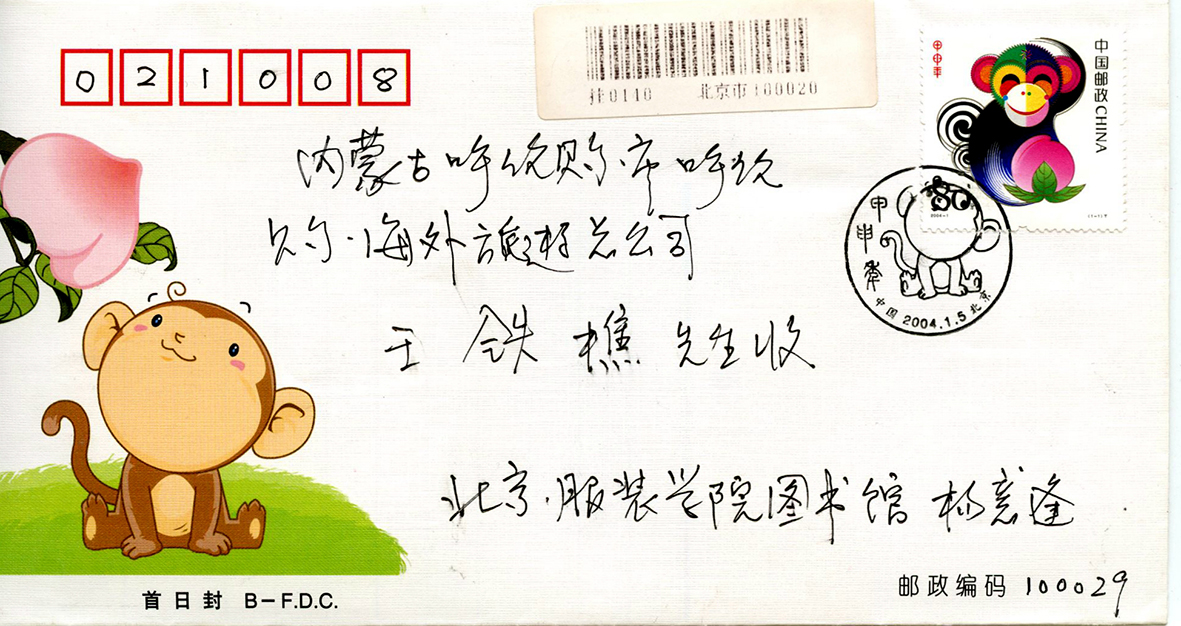 021008
挂0140 北京市100020
甲申年
中国邮政CHINA
2004-1
(1-1)T
内蒙古呼伦贝尔市呼伦
贝尔海外旅游总公司
王铁樵先生收
甲申年
中国 2004.1.5 北京
北京服装学院图书馆 杨意逢
首日封 B-F.D.C.
邮政编码 100029